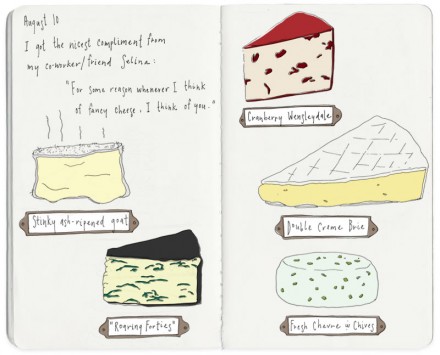 August 10
I got the nicest compliment from
my co-worker/friend Selina:
"For some reason whenever I think
of fancy cheese, I think of you."
Stinky ash-ripened goat
"Roaring Forties"
Cranberry Wensleydale
Double Creme Brie
Fresh Chevre w Chives